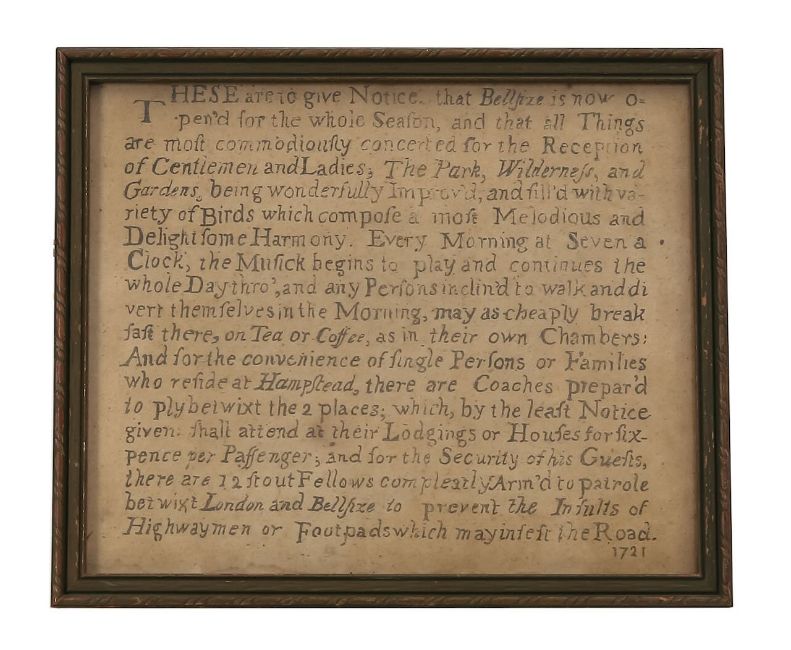 THESE are to give Notice that Bellſize is now o=
pen'd for the whole Seaſon, and that all Things
are moſt commodiouſly concerted for the Reception
of Gentlemen and Ladies; The Park, Wilderneſs, and
Gardens, being wonderfully Improv'd, and fill'd with va-
riety of Birds which compoſe a moſt Melodious and
Delightſome Harmony. Every Morning at Seven a
Clock, the Muſick begins to play and continues the
whole Day thro', and any Perſons inclin'd to walk and di
vert themſelves in the Morning, may as cheaply break
faſt there, on Tea or Coffee, as in their own Chambers:
And for the convenience of ſingle Perſons or Families
who reſide at Hampſtead, there are Coaches prepar'd
to ply betwixt the 2 places; which, by the leaſt Notice
given: ſhall attend at their Lodgings or Houſes for ſix-
pence per Paſſenger; and for the Security of his Gueſts,
there are 12 ſtout Fellows compleatly Arm'd to patrole
betwixt London and Bellſize to prevent the Inſults of
Highwaymen or Footpads which may infeſt the Road.
1721